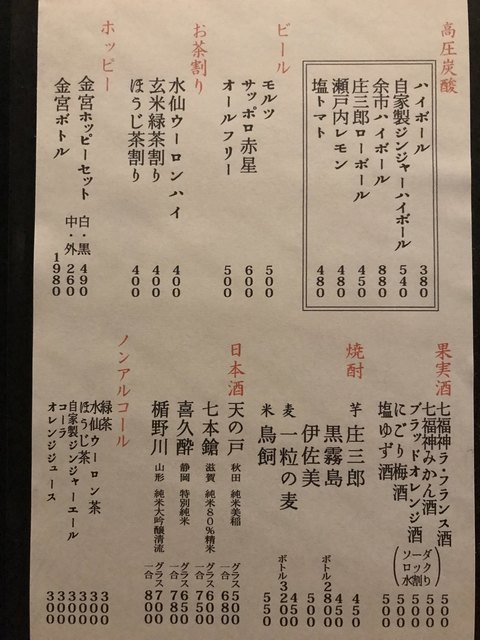 高圧炭酸
ハイボール 380
自家製ジンジャーハイボール 540
余市ハイボール 880
庄三郎ローボール 450
瀬戸内レモン 480
塩トマト 480
ビール
モルツ 500
サッポロ赤星 600
オールフリー 500
お茶割り
水仙ウーロンハイ 400
玄米緑茶割り 400
ほうじ茶割り 400
ホッピー
金宮ホッピーセット 白・黒 490
中・外 260
金宮ボトル 1980
果実酒
七福神ラ・フランス酒 500
七福神みかん酒 500
ブラッドオレンジ酒 500
にごり梅酒 500
塩ゆず酒 500
(ソーダ
ロック
水割り)
焼酎
芋 庄三郎 450
黒霧島 450
ボトル2800
伊佐美 500
麦 一粒の麦 450
ボトル3200
米 鳥飼 550
日本酒
天の戸 秋田 純米美稲 グラス 500
一合 680
七本鎗 滋賀 純米80%精米 グラス 600
一合 750
喜久酔 静岡 特別純米 グラス 650
一合 780
楯野川 山形 純米大吟醸清流 グラス 700
一合 870
ノンアルコール
緑茶 300
水仙ウーロン茶 300
ほうじ茶 300
自家製ジンジャーエール 300
コーラ 300
オレンジジュース 300